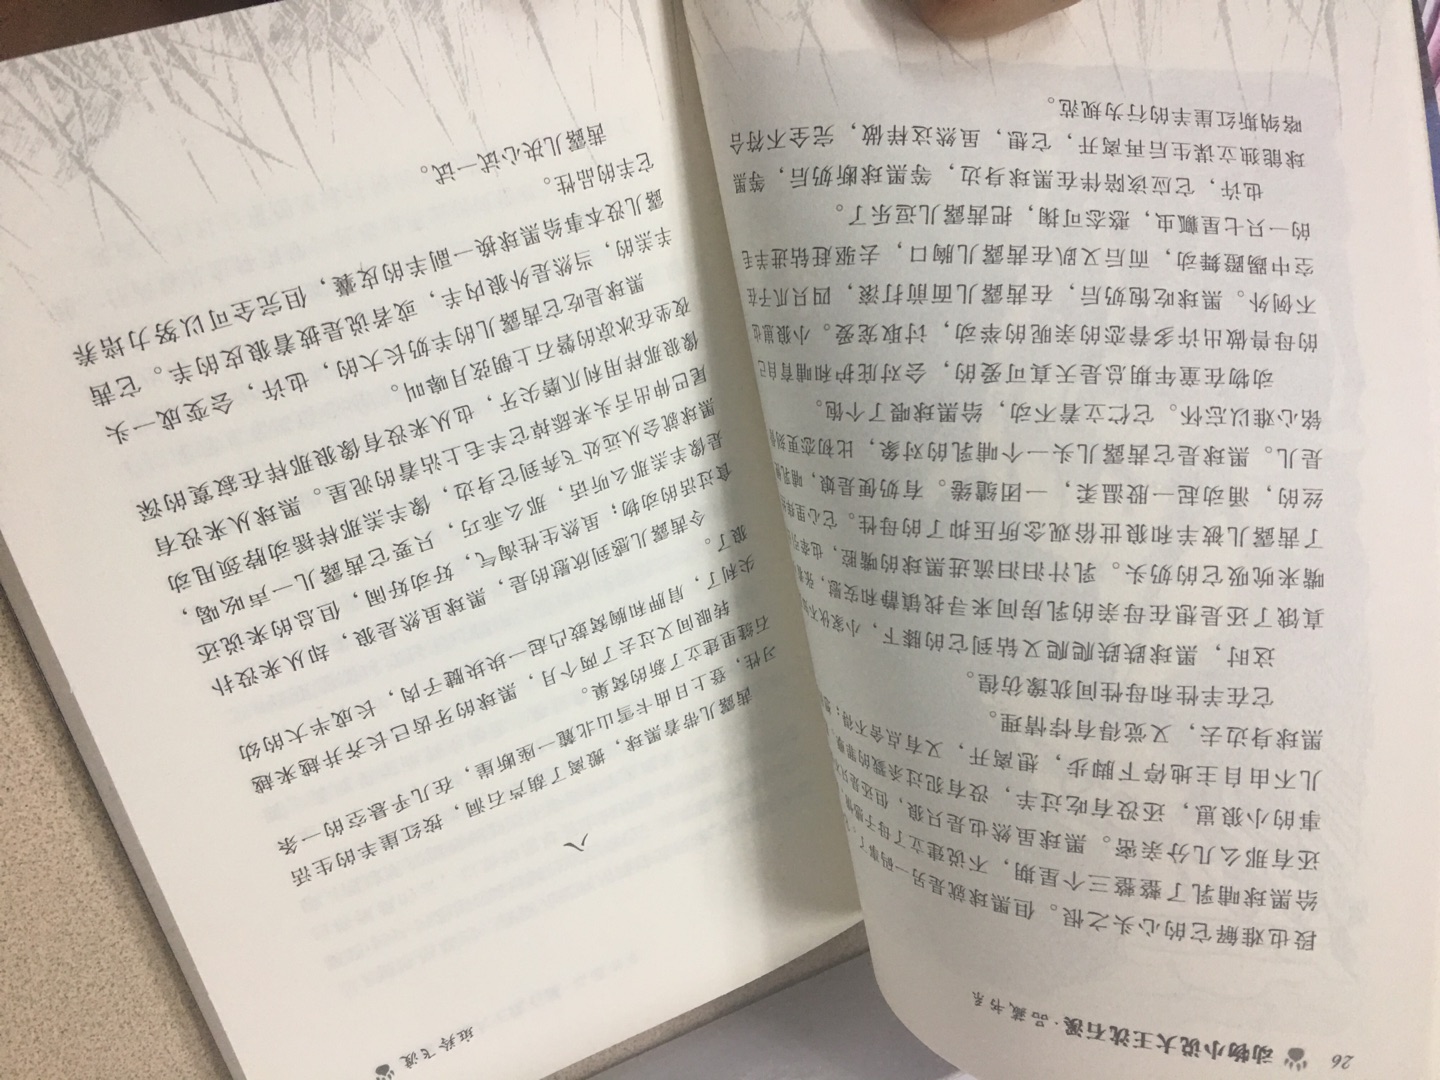 26 动物小说大王沈石溪·品藏书系
段也难解它的心头之恨。但黑球就是另一码事了
给黑球哺乳了整整三个星期，不说建立了母子感情
还有那么几分亲密。黑球虽然也是只狼，但还是
事的小狼崽，还没有吃过羊，没有犯过杀戮的罪
儿不由自主地停下脚步，想离开，又有点舍不得；
黑球身边去，又觉得有悖情理。
它在羊性和母性间犹豫彷徨。
这时，黑球跌跌爬爬又钻到它的膝下，小家伙
真饿了还是想在母亲的乳房间来寻找镇静和安慰，张
嘴来吮吸它的奶头。乳汁汩汩流进黑球的嘴腔，也牵引
了茜露儿被羊和狼世俗观念所压抑了的母性。它心里
丝的，涌动起一股温柔，一团缱绻。有奶便是娘，哺乳
是儿。黑球是它茜露儿头一个哺乳的对象，比初恋更刻
铭心难以忘怀。它伫立着不动，给黑球喂了个饱。
动物在童年期总是天真可爱的，会对庇护和哺育自己
的母兽做出许多眷恋的亲昵的举动，讨取宠爱。小狼崽也
不例外。黑球吃饱奶后，在茜露儿面前打滚，四只爪子在
空中踢蹬舞动，而后又趴在茜露儿胸口，去驱赶钻进羊毛
的一只七星瓢虫，憨态可掬，把茜露儿逗乐了。
也许，它应该陪伴在黑球身边，等黑球断奶后，等黑
球能独立谋生后再离开，它想，虽然这样做，完全不符合
喀纳斯红崖羊的行为规范。
斑羚飞渡
八
茜露儿带着黑球，搬离了葫芦石洞，按红崖羊的生活
习性，登上日曲卡雪山北麓一座断崖，在几乎悬空的一条
石缝里建立了新的窝巢。
转眼间又过去了两个月，黑球的牙齿已长齐并越来越
尖利了，肩胛和胸窝鼓凸起一块块腱子肉，长成半大的幼
狼了。
令茜露儿感到欣慰的是，黑球虽然是狼，却从来没扑
食过活的动物；虽然生性淘气，好动好闹，但总的来说还
是像羊羔那么听话，那么乖巧，只要它茜露儿一声吆喝，
黑球就会从远处飞奔到它身边，像羊羔那样摇动脖颈甩动
尾巴伸出舌头来舔掉它羊毛上沾着的泥星。黑球从来没有
像狼那样用利爪磨尖牙，也从来没有像狼那样在寂寞的深
夜坐在冰凉的磐石上朝弦月嗥叫。
黑球是吃它茜露儿的羊奶长大的，也许，会变成一头
羊羔的，当然是外狼内羊，或者说是披着狼皮的羊。它茜
露儿没本事给黑球换一副羊的皮囊，但完全可以努力培养
它羊的品性。
茜露儿决心试一试。